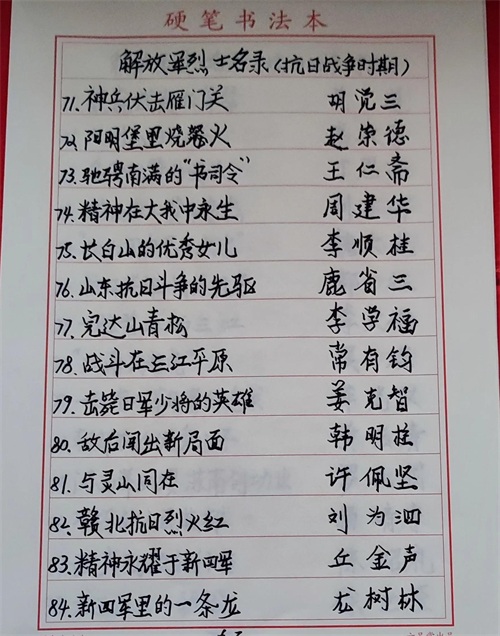 硬笔书法本
解放军烈士名录(抗日战争时期)
71.神兵伏击雁门关 胡觉三
72.阳明堡里烧器火 赵崇德
73.驰骋南满的"书司令" 王仁斋
74.精神在大我中永生 周建华
75.长白山的优秀女儿 李顺桂
76.山东抗日斗争的先驱 鹿省三
77.完达山青松 李学福
78.战斗在三江平原 常有钧
79.击毙日军少将的英雄 姜克智
80.敌后闯出新局面 韩明柱
81.与灵山同在 许佩坚
82.赣北抗日烈火红 刘为泗
83.精神永耀于新四军 丘金声
84.新四军里的一条龙 尤树林